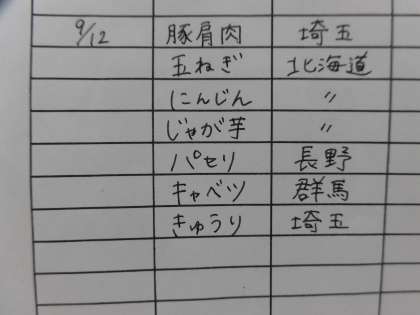 9/12 豚肩肉 埼玉
玉ねぎ 北海道
にんじん 〃
じゃが芋 〃
パセリ 長野
キャベツ 群馬
きゅうり 埼玉